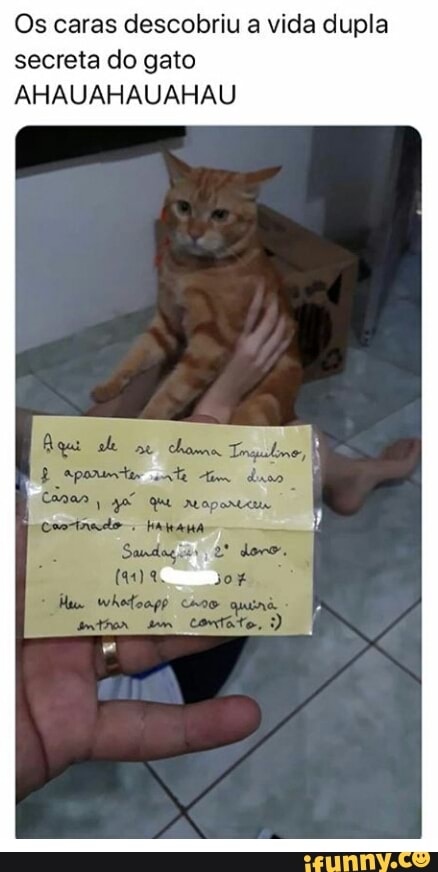 Os caras descobriu a vida dupla
secreta do gato
AHAUAHAUAHAU
Aqui ele se chama Inquilino,
E aparentemente tem duas
casas, já que reapareceu
castrado. HAHAHA
Saudações, 2° dono.
(91) 9 07
Meu whatsapp caso queira
entrar em contato. :)
ifunny.co